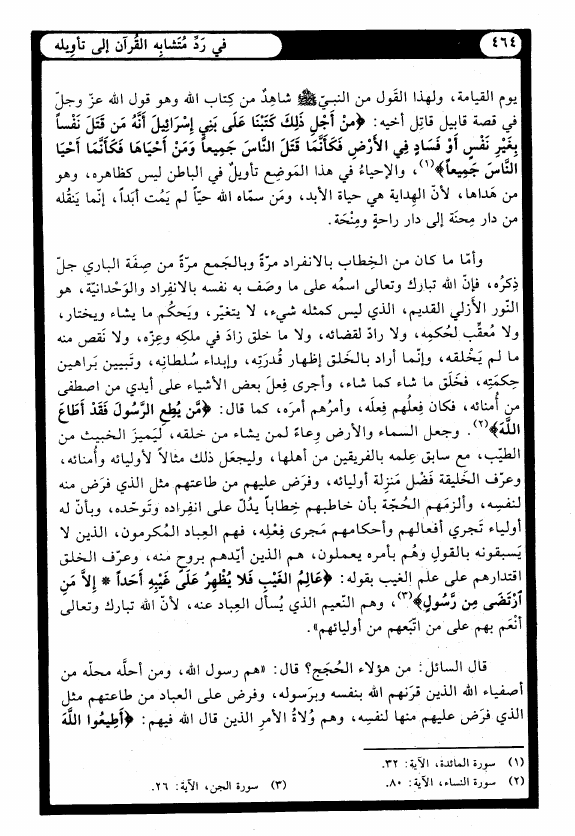 ٤٦٤
في رَدِّ مُتَشابِه القُرآن إلى تأوِيله
يوم القيامة، ولهذا القَول من النبيّ ﷺ شاهِدٌ من كِتاب الله وهو قول الله عزّ وجلّ
في قصة قابيل قاتِل أخيه: ﴿مِنْ أَجْلِ ذَلِكَ كَتَبْنَا عَلَى بَنِي إِسْرَائِيلَ أَنَّهُ مَن قَتَلَ نَفْساً
بِغَيْرِ نَفْسٍ أَوْ فَسَادٍ فِي الأَرْضِ فَكَأَنَّمَا قَتَلَ النَّاسَ جَمِيعاً وَمَنْ أَحْيَاهَا فَكَأَنَّمَا أَحْيَا
النَّاسَ جَمِيعاً﴾(١)، والإحياءُ في هذا المَوضِع تأويلٌ في الباطن ليس كظاهره، وهو
من هَداها، لأنّ الهِداية هي حياة الأبد، ومَن سمّاه الله حيّاً لم يَمُت أبَداً، إنّما يَنقُله
من دار مِحنَة إلى دار راحةٍ ومِنْحَة.
وأمّا ما كان من الخِطاب بالانفراد مرّةً وبالجَمع مرّةً من صِفَة الباري جلّ
ذِكرُه، فإنّ الله تبارك وتعالى اسمُه على ما وصَف به نفسه بالانفِراد والوَحْدانيّة، هو
النّور الأزلي القديم، الذي ليس كمثله شيء، لا يتغيّر، ويَحكُم ما يشاء ويختار،
ولا مُعقِّب لحُكمِه، ولا رادّ لقضائه، ولا ما خلق زادَ في ملكِه وعِزّه، ولا نَقص منه
ما لم يَخْلقه، وإنّما أراد بالخَلق إظهار قُدرَتِه، وإبداء سُلطانِه، وتَبيين بَراهين
حِكمَتِه، فخَلَق ما شاء كما شاء، وأجرى فِعلَ بعض الأشياء على أيدي من اصطفى
من أمنائه، فكان فِعلُهم فِعلَه، وأمرُهم أمرَه، كما قال: ﴿مَّن يُطِعِ الرَّسُولَ فَقَدْ أَطَاعَ
اللَّهَ﴾(٢). وجعل السماء والأرض وِعاءً لمن يشاء من خلقه، ليَميزَ الخبيث من
الطيّب، مع سابق عِلمه بالفريقين من أهلها، وليجعَل ذلك مثالاً لأوليائه وأُمنائه،
وعرّف الخَليقة فَضْل مَنزِلة أوليائه، وفرَض عليهم من طاعتهم مثل الذي فرَض منه
لنفسِه، وألزمَهم الحُجّة بأن خاطبهم خِطاباً يدُلّ على انفِراده وتَوحّده، وبأنّ له
أولياء تَجري أفعالهم وأحكامهم مَجرى فِعْلِه، فهم العِباد المُكرمون، الذين لا
يَسبقونه بالقولِ وهُم بأمره يعملون، هم الذين أيّدهم بروحٍ منه، وعرّف الخلق
اقتدارهم على علم الغيب بقوله: ﴿عَالِمُ الغَيْبِ فَلَا يُظْهِرُ عَلَى غَيْبِهِ أَحَداً * إِلاَّ مَنِ
ٱرْتَضَى مِن رَّسُولٍ﴾(٣)، وهم النَّعيم الذي يُسأل العِباد عنه، لأنّ الله تبارك وتعالى
أنْعَم بهم على من اتّبَعهم من أوليائهم».
قال السائل: من هؤلاء الحُجَج؟ قال: «هم رسول الله، ومن أحلَّه محلّه من
أصفياء الله الذين قرَنهم الله بنفسه وبرَسوله، وفرض على العباد من طاعتهم مثل
الذي فرَض عليهم منها لنفسِه، وهم وُلاةُ الأمرِ الذين قال الله فيهم: ﴿أَطِيعُوا اللَّهَ
(١) سورة المائدة، الآية: ٣٢.
(٢) سورة النساء، الآية: ٨٠.
(٣) سورة الجن، الآية: ٢٦.